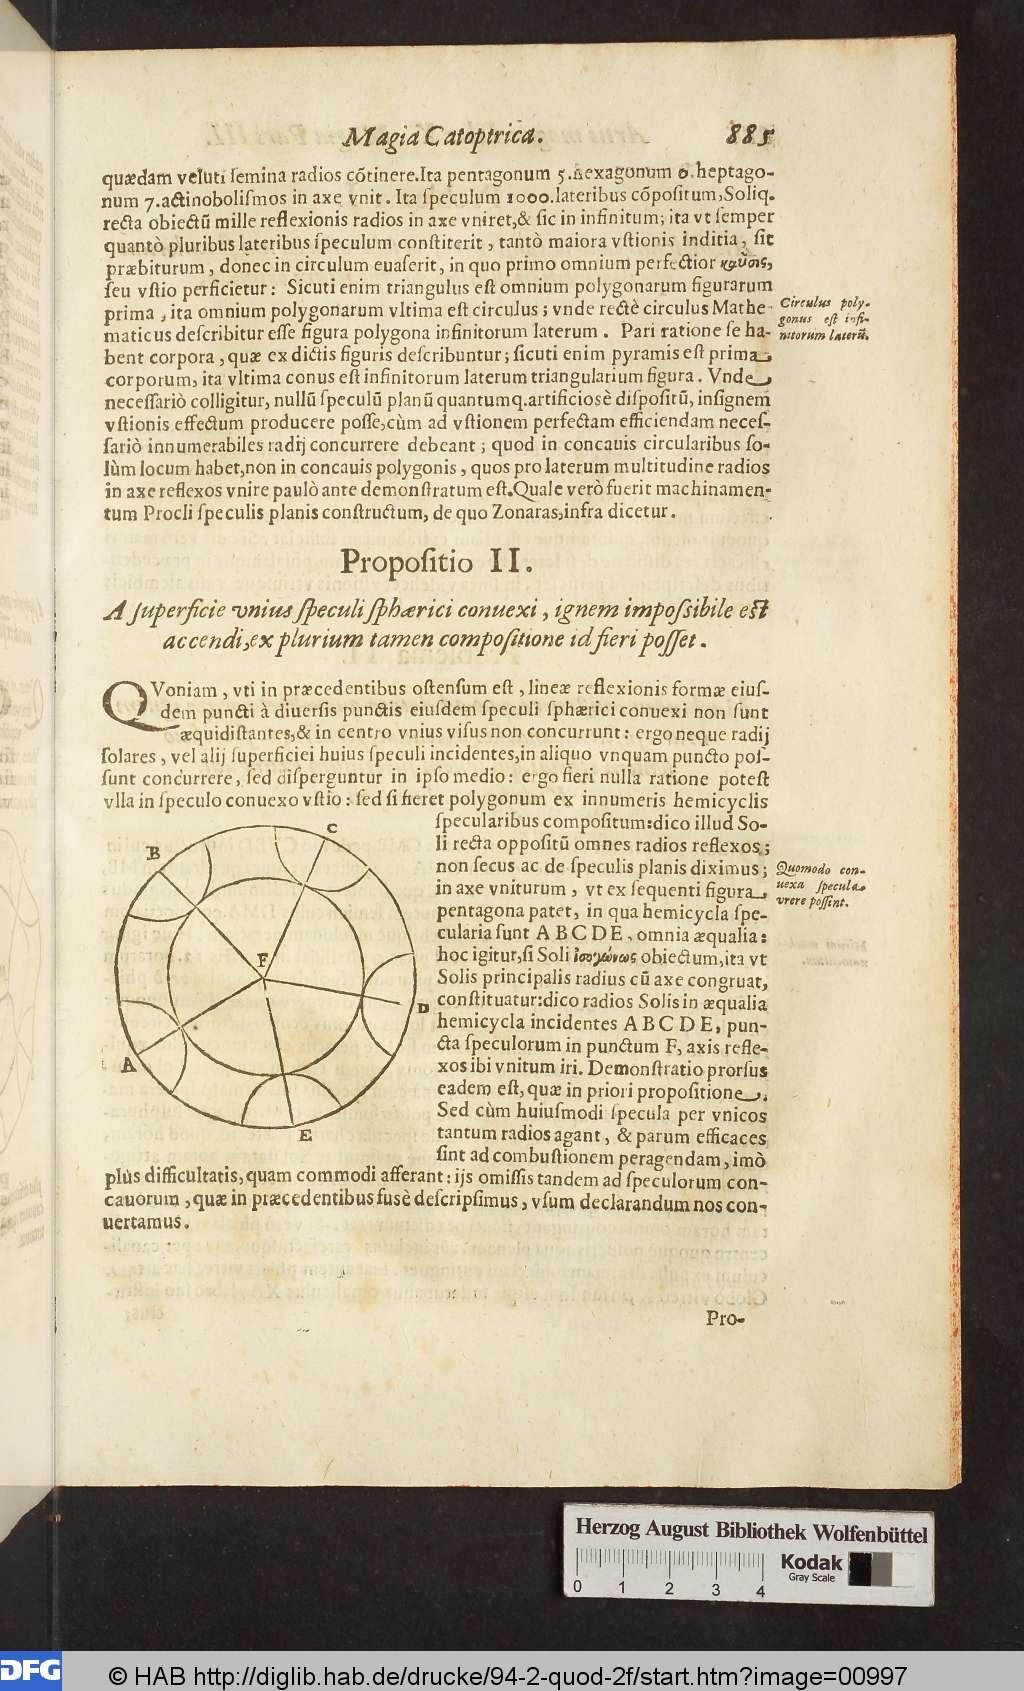 Magia Catoptrica. 885
quædam veluti ſemina radios cõtinere. Ita pentagonum 5. hexagonum 6. heptago-
num 7. actinobolifmos in axe vnit. Ita ſpeculum 1000. lateribus cõpoſitum, Soliq.
recta obiectũ mille reflexionis radios in axe vniret, & ſic in infinitum; ita vt ſemper
quantò pluribus lateribus ſpeculum conſtiterit, tantò maiora vſtionis inditia, ſit
præbiturum, donec in circulum euaſerit, in quo primo omnium perfectior καῦσις,
ſeu vſtio perficietur: Sicuti enim triangulus eſt omnium polygonarum figurarum
prima, ita omnium polygonarum vltima eſt circulus; vnde rectè circulus Mathe-
maticus deſcribitur eſſe figura polygona infinitorum laterum. Pari ratione ſe ha-
bent corpora, quæ ex dictis figuris deſcribuntur; ſicuti enim pyramis eſt prima
corporum, ita vltima conus eſt infinitorum laterum triangularium figura. Vnde
neceſſariò colligitur, nullũ ſpeculũ planũ quantumq. artificiosè diſpoſitũ, inſignem
vſtionis effectum producere poſſe, cùm ad vſtionem perfectam efficiendam neceſ-
ſariò innumerabiles radij concurrere debeant; quod in concauis circularibus ſo-
lùm locum habet, non in concauis polygonis, quos pro laterum multitudine radios
in axe reflexos vnire paulò ante demonſtratum eſt. Quale verò fuerit machinamen-
tum Procli ſpeculis planis conſtructum, de quo Zonaras, infra dicetur.
Circulus poly-
gonus eſt infi-
nitorum laterũ.
Propoſitio II.
A ſuperficie vnius ſpeculi ſphærici conuexi, ignem impoſsibile eſt
accendi, ex plurium tamen compoſitione id fieri poſſet.
QVoniam, vti in præcedentibus oſtenſum eſt, lineæ reflexionis formæ eiuſ-
dem puncti à diuerſis punctis eiuſdem ſpeculi ſphærici conuexi non ſunt
æquidiſtantes, & in centro vnius viſus non concurrunt: ergo neque radij
ſolares, vel alij ſuperficiei huius ſpeculi incidentes, in aliquo vnquam puncto poſ-
ſunt concurrere, ſed diſperguntur in ipſo medio: ergo fieri nulla ratione poteſt
vlla in ſpeculo conuexo vſtio: ſed ſi fieret polygonum ex innumeris hemicyclis
ſpecularibus compoſitum: dico illud So-
li recta oppoſitũ omnes radios reflexos;
non ſecus ac de ſpeculis planis diximus;
in axe vniturum, vt ex ſequenti figura
pentagona patet, in qua hemicycla ſpe-
cularia ſunt A B C D E, omnia æqualia:
hoc igitur, ſi Soli ἰσογώνως obiectum, ita vt
Solis principalis radius cũ axe congruat,
conſtituatur: dico radios Solis in æqualia
hemicycla incidentes A B C D E, pun-
cta ſpeculorum in punctum F, axis refle-
xos ibi vnitum iri. Demonſtratio prorſus
eadem eſt, quæ in priori propoſitione.
Sed cùm huiuſmodi ſpecula per vnicos
tantum radios agant, & parum efficaces
ſint ad combuſtionem peragendam, imò
plùs difficultatis, quam commodi afferant: ijs omiſſis tandem ad ſpeculorum con-
cauorum, quæ in præcedentibus fusè deſcripſimus, vſum declarandum nos con-
uertamus.
Quomodo con-
uexa ſpecula
vrere poſſint.
C
B
F
D
A
E
Pro-
Herzog August Bibliothek Wolfenbüttel
Kodak
Gray Scale
0 1 2 3 4
DFG
© HAB http://diglib.hab.de/drucke/94-2-quod-2f/start.htm?image=00997